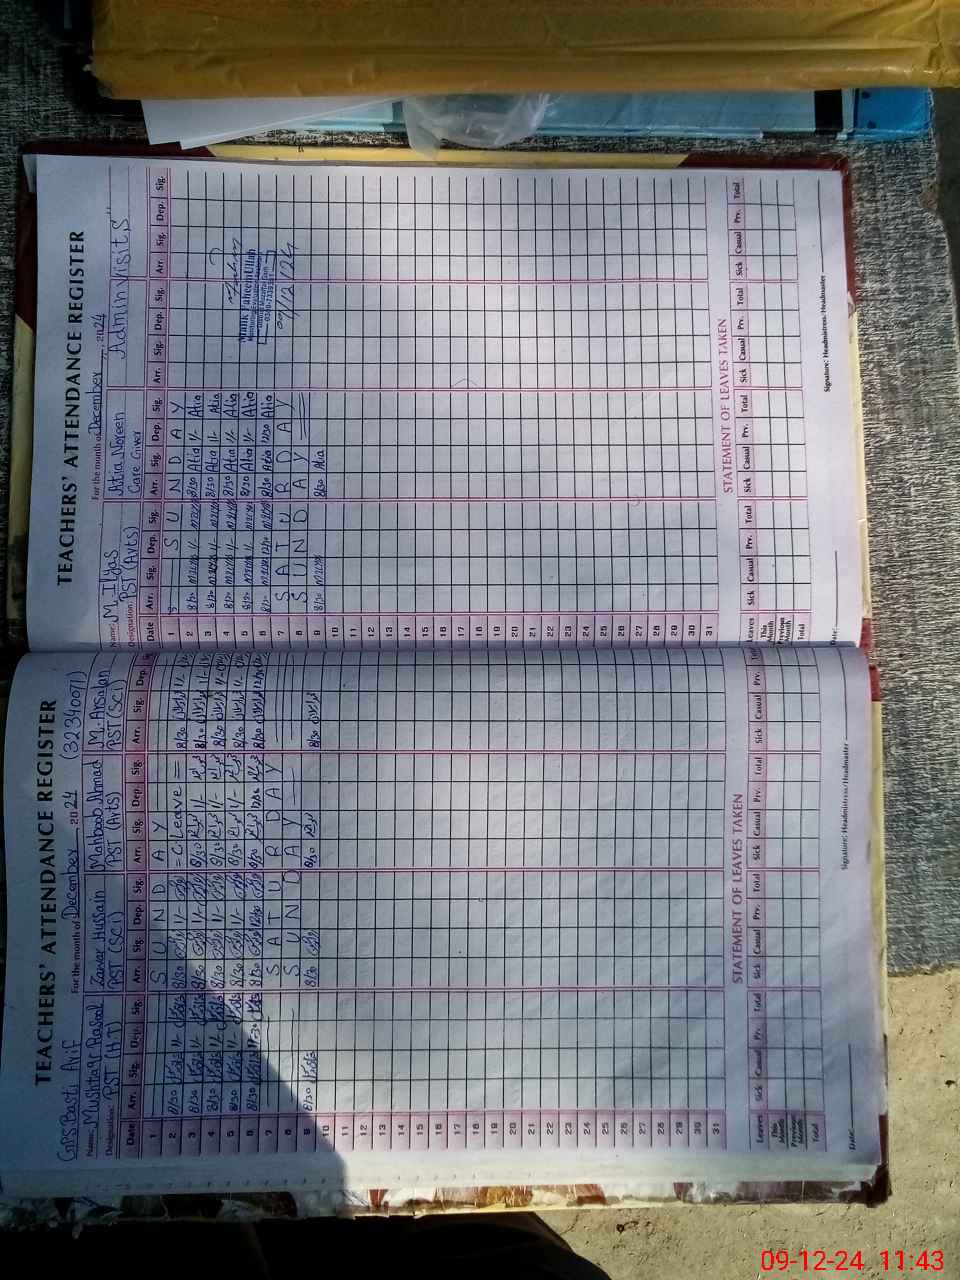 GPS Basti Arif
TEACHERS' ATTENDANCE REGISTER
For the month of December, 2024 (32340071)
Name: Mushtaq Rasool Zawar Hussain Mahboob Ahmad M. Arsalan
Designation: PST (H.T) PST (Sci) PST (Arts) PST (Sci)
Date Arr. Sig. Dep. Sig. Arr. Sig. Dep. Sig. Arr. Sig. Dep. Sig. Arr. Sig. Dep.
1 S U N D A Y
2 8/30 1/- 8/30 1/- = C Leave = 8/30 1/-
3 8/30 1/- 8/30 1/- 8/30 1/- 8/30 1/-
4 8/30 1/- 8/30 1/- 8/30 1/- 8/30 1/-
5 8/30 1/- 8/30 1/- 8/30 1/- 8/30 1/-
6 8/30 8/30 12/30 8/30 8/30
7 S A T U R D A Y
8 S U N D A Y
9 8/30 8/30 8/30 8/30
10
11
12
13
14
15
16
17
18
19
20
21
22
23
24
25
26
27
28
29
30
31
STATEMENT OF LEAVES TAKEN
Leaves Sick Casual Prv. Total Sick Casual Prv. Total Sick Casual Prv. Total Sick Casual Prv. Total
This Month
Previous Month
Total
Date: Signature: Headmistress/Headmaster
TEACHERS' ATTENDANCE REGISTER
For the month of December, 2024
Name: M. Ilyas Atia Noreen Admin Visits"
Designation: PST (Arts) Care Giver
Date Arr. Sig. Dep. Sig. Arr. Sig. Dep. Sig. Arr. Sig. Dep. Sig. Arr. Sig. Dep. Sig.
1 S U N D A Y
2 8/30 1/- 8/30 Atia 1/- Atia
3 8/30 1/- 8/30 Atia 1/- Atia
4 8/30 1/- 8/30 Atia 1/- Atia
5 8/30 1/- 8/30 Atia 1/- Atia
6 8/30 12/30 8/30 Atia 12/30 Atia
7 S A T U R D A Y
8 S U N D A Y
9 8/30 8/30 Atia
10
11
12
13
14
15
16
17
18
19
20
21
22
23
24
25
26
27
28
29
30
31
Malik Faheem Ullah
09/12/24
STATEMENT OF LEAVES TAKEN
Leaves Sick Casual Prv. Total Sick Casual Prv. Total Sick Casual Prv. Total Sick Casual Prv. Total
This Month
Previous Month
Total
Date: Signature: Headmistress/Headmaster
09-12-24 11:43